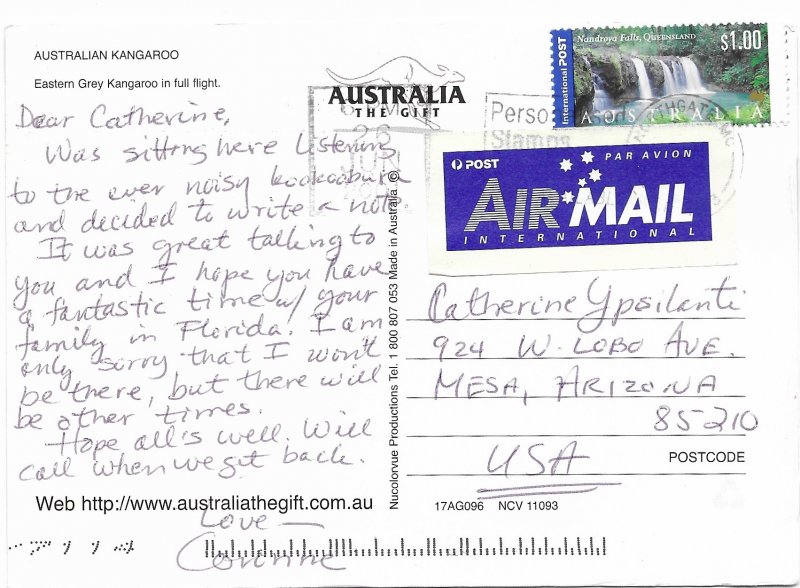 AUSTRALIAN KANGAROO
Eastern Grey Kangaroo in full flight.
Dear Catherine,
Was sitting here listening
to the ever noisy kookoobura
and decided to write a note.
It was great talking to
you and I hope you have
a fantastic time w/ your
family in Florida. I am
only sorry that I won't
be there, but there will
be other times.
Hope all's well. Will
call when we get back.
Love—
Corinne
Web http://www.australiathegift.com.au
AUSTRALIA
THE GIFT
Nucolorvue Productions Tel. 1 800 807 053 Made in Australia ©
International POST
Nandroya Falls, Queensland
$1.00
AUSTRALIA
Stamps
NORTHGATE MC
POST
PAR AVION
AIR MAIL
INTERNATIONAL
Catherine Ypsilanti
924 W. LOBO AVE.
MESA, ARIZONA
85210
USA
POSTCODE
17AG096 NCV 11093